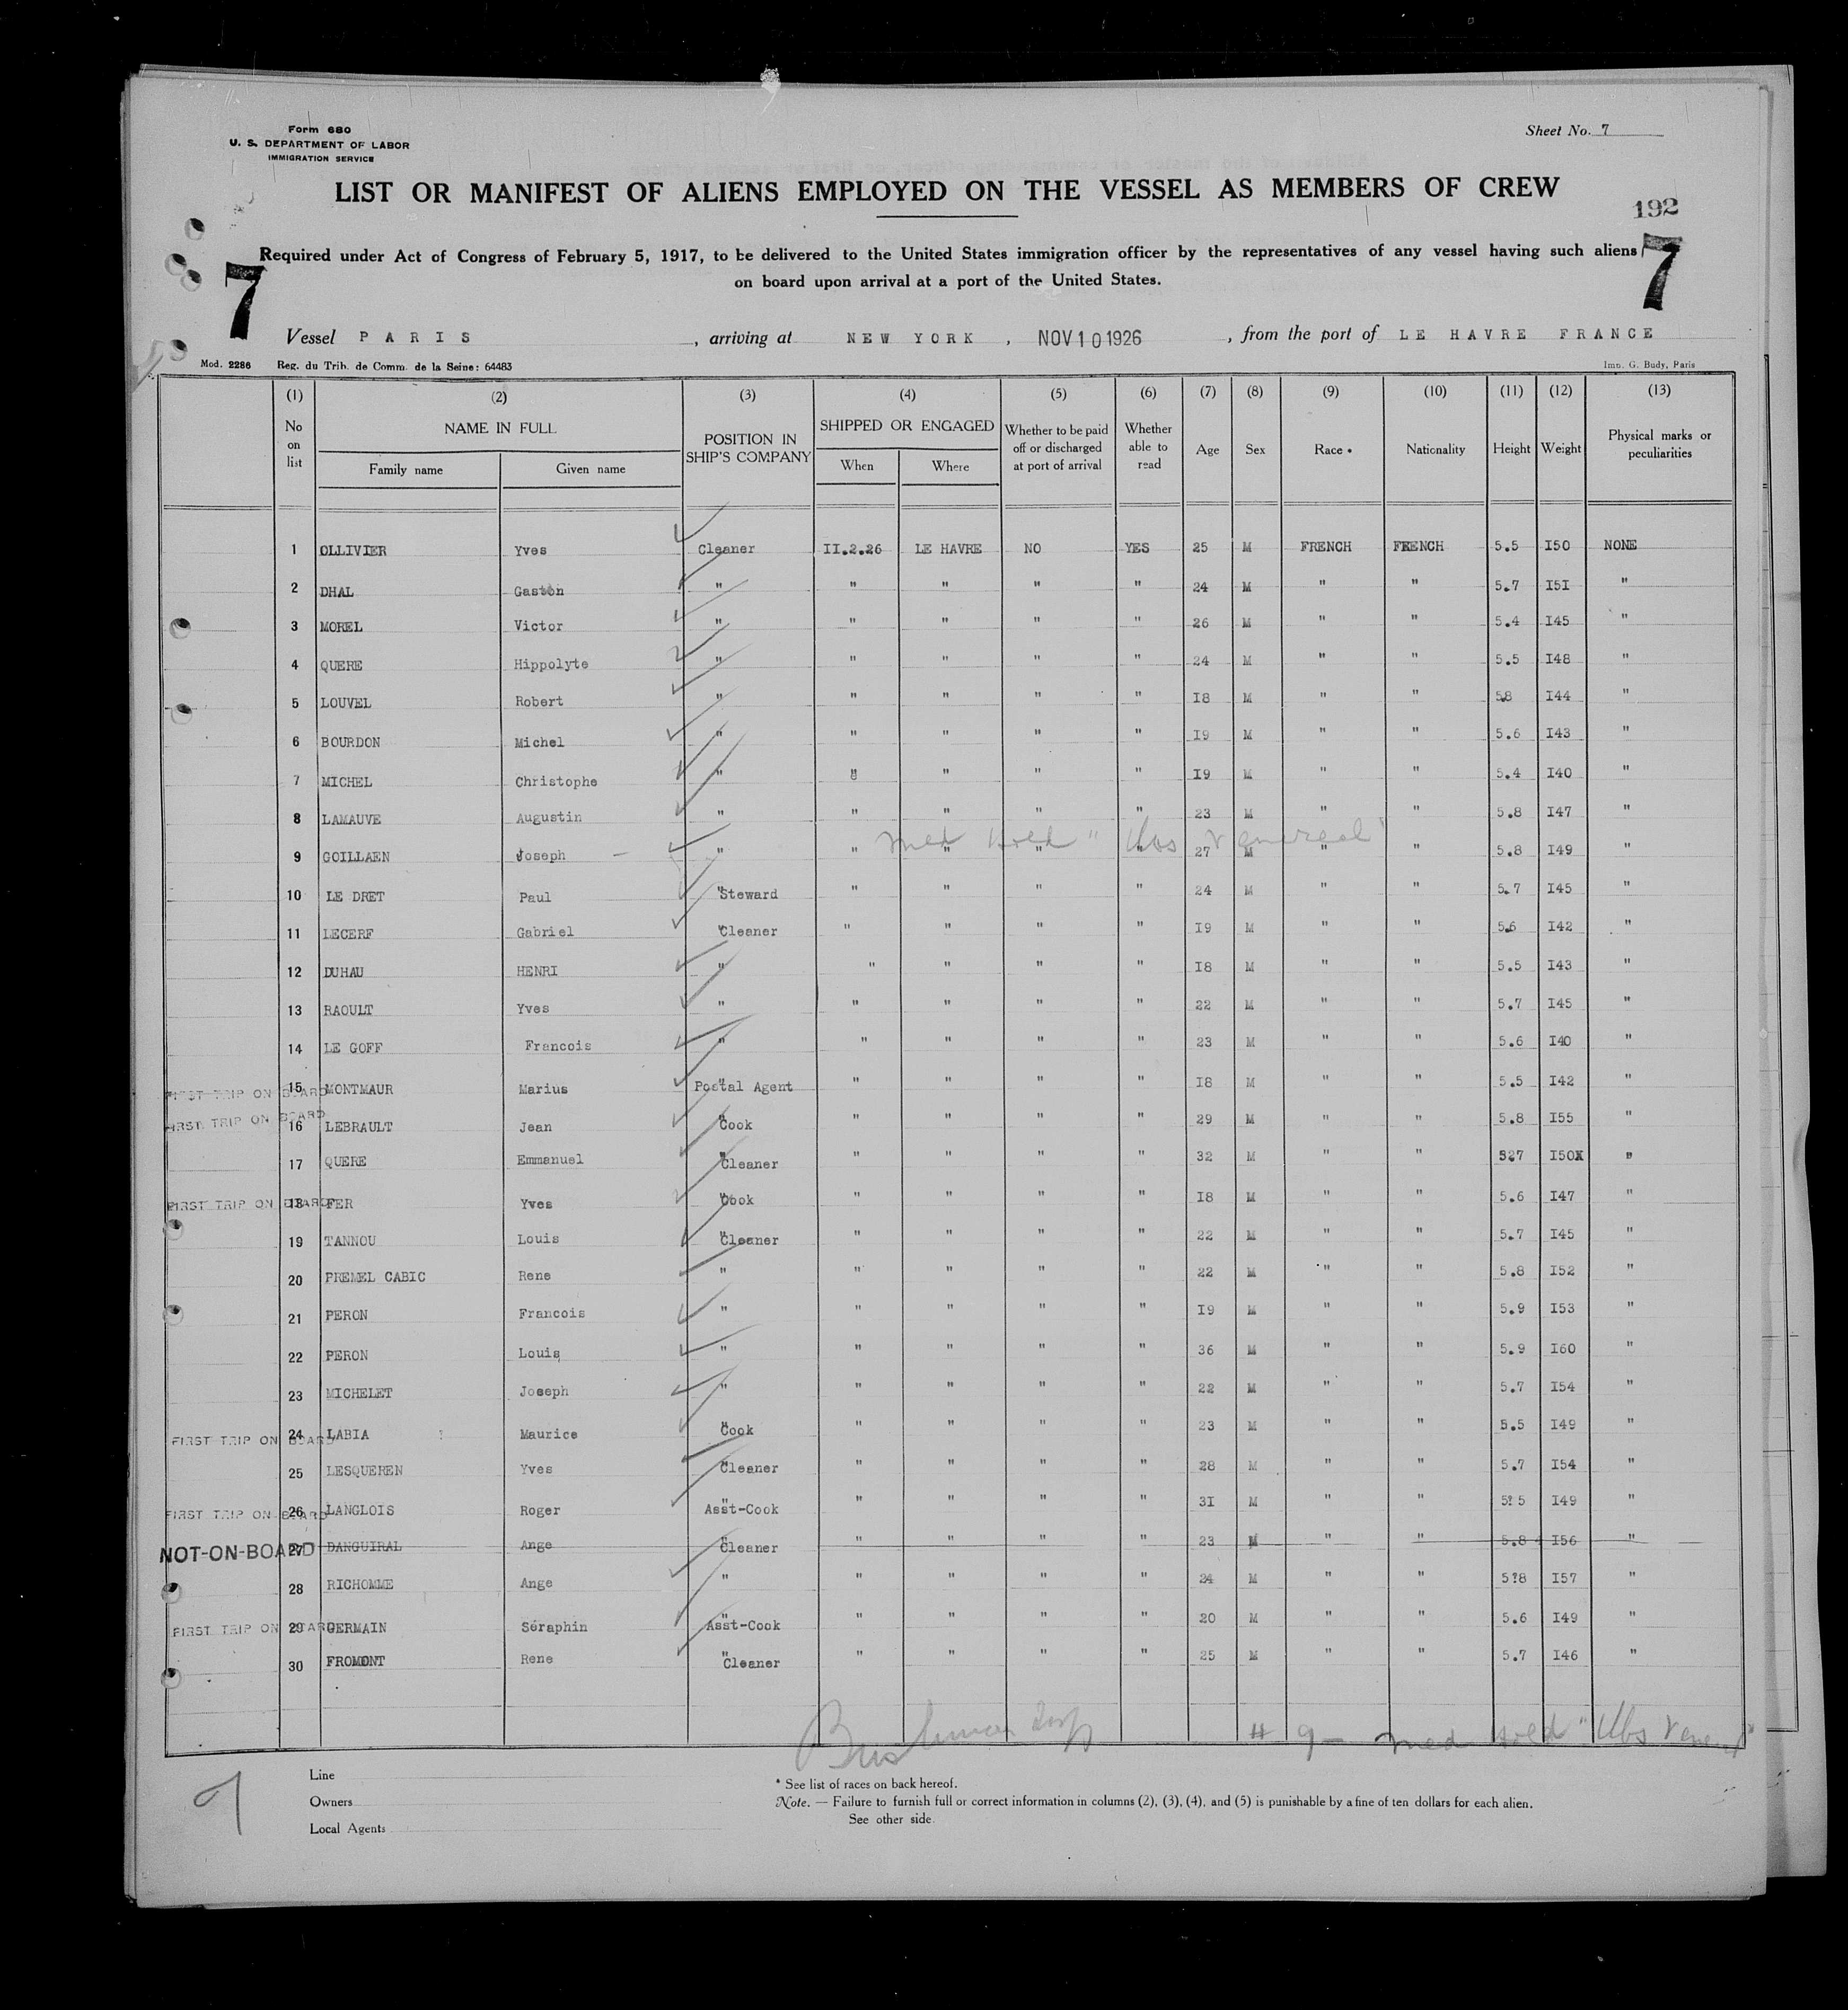 Form 680
U. S. DEPARTMENT OF LABOR
IMMIGRATION SERVICE
Sheet No. 7
LIST OR MANIFEST OF ALIENS EMPLOYED ON THE VESSEL AS MEMBERS OF CREW
192
Required under Act of Congress of February 5, 1917, to be delivered to the United States immigration officer by the representatives of any vessel having such aliens
on board upon arrival at a port of the United States.
7 7
Vessel PARIS, arriving at NEW YORK, NOV 10 1926, from the port of LE HAVRE FRANCE
Mod. 2286 Reg. du Trib. de Comm. de la Seine: 64483 Imp. G. Budy, Paris
(1) (2) (3) (4) (5) (6) (7) (8) (9) (10) (11) (12) (13)
No on list NAME IN FULL Family name Given name POSITION IN SHIP'S COMPANY SHIPPED OR ENGAGED When Where Whether to be paid off or discharged at port of arrival Whether able to read Age Sex Race * Nationality Height Weight Physical marks or peculiarities
1 OLLIVIER Yves Cleaner II.2.26 LE HAVRE NO YES 25 M FRENCH FRENCH 5.5 I50 NONE
2 DHAL Gaston " " " " " 24 M " " 5.7 I5I "
3 MOREL Victor " " " " " 26 M " " 5.4 I45 "
4 QUERE Hippolyte " " " " " 24 M " " 5.5 I48 "
5 LOUVEL Robert " " " " " I8 M " " 5.8 I44 "
6 BOURDON Michel " " " " " I9 M " " 5.6 I43 "
7 MICHEL Christophe " " " " " I9 M " " 5.4 I40 "
8 LAMAUVE Augustin " " " " " 23 M " " 5.8 I47 "
Med Hold "Obs Venereal"
9 GOILLAEN Joseph — " " " " " 27 M " " 5.8 I49 "
10 LE DRET Paul "Steward " " " " 24 M " " 5.7 I45 "
11 LECERF Gabriel "Cleaner " " " " I9 M " " 5.6 I42 "
12 DUHAU HENRI " " " " " I8 M " " 5.5 I43 "
13 RAOULT Yves " " " " " 22 M " " 5.7 I45 "
14 LE GOFF Francois " " " " " 23 M " " 5.6 I40 "
FIRST TRIP ON BOARD 15 MONTMAUR Marius Postal Agent " " " " I8 M " " 5.5 I42 "
FIRST TRIP ON BOARD 16 LEBRAULT Jean "Cook " " " " 29 M " " 5.8 I55 "
17 QUERE Emmanuel "Cleaner " " " " 32 M " " 5.7 I50 "
FIRST TRIP ON BOARD 18 FER Yves "Cook " " " " I8 M " " 5.6 I47 "
19 TANNOU Louis "Cleaner " " " " 22 M " " 5.7 I45 "
20 PREMEL CABIC Rene " " " " " 22 M " " 5.8 I52 "
21 PERON Francois " " " " " I9 M " " 5.9 I53 "
22 PERON Louis " " " " " 36 M " " 5.9 I60 "
23 MICHELET Joseph " " " " " 22 M " " 5.7 I54 "
FIRST TRIP ON BOARD 24 LABIA Maurice "Cook " " " " 23 M " " 5.5 I49 "
25 LESQUEREN Yves "Cleaner " " " " 28 M " " 5.7 I54 "
FIRST TRIP ON BOARD 26 LANGLOIS Roger Asst-Cook " " " " 3I M " " 5?5 I49 "
NOT-ON-BOARD 27 DANGUIRAL Ange "Cleaner " " " " 23 M " " 5.8 I56 "
28 RICHOMME Ange " " " " " 24 M " " 5?8 I57 "
FIRST TRIP ON BOARD 29 GERMAIN Séraphin Asst-Cook " " " " 20 M " " 5.6 I49 "
30 FROMONT Rene "Cleaner " " " " 25 M " " 5.7 I46 "
# 9 - Med Hold "Obs Vener"
Line
Owners
Local Agents
* See list of races on back hereof.
Note. — Failure to furnish full or correct information in columns (2), (3), (4), and (5) is punishable by a fine of ten dollars for each alien.
See other side.